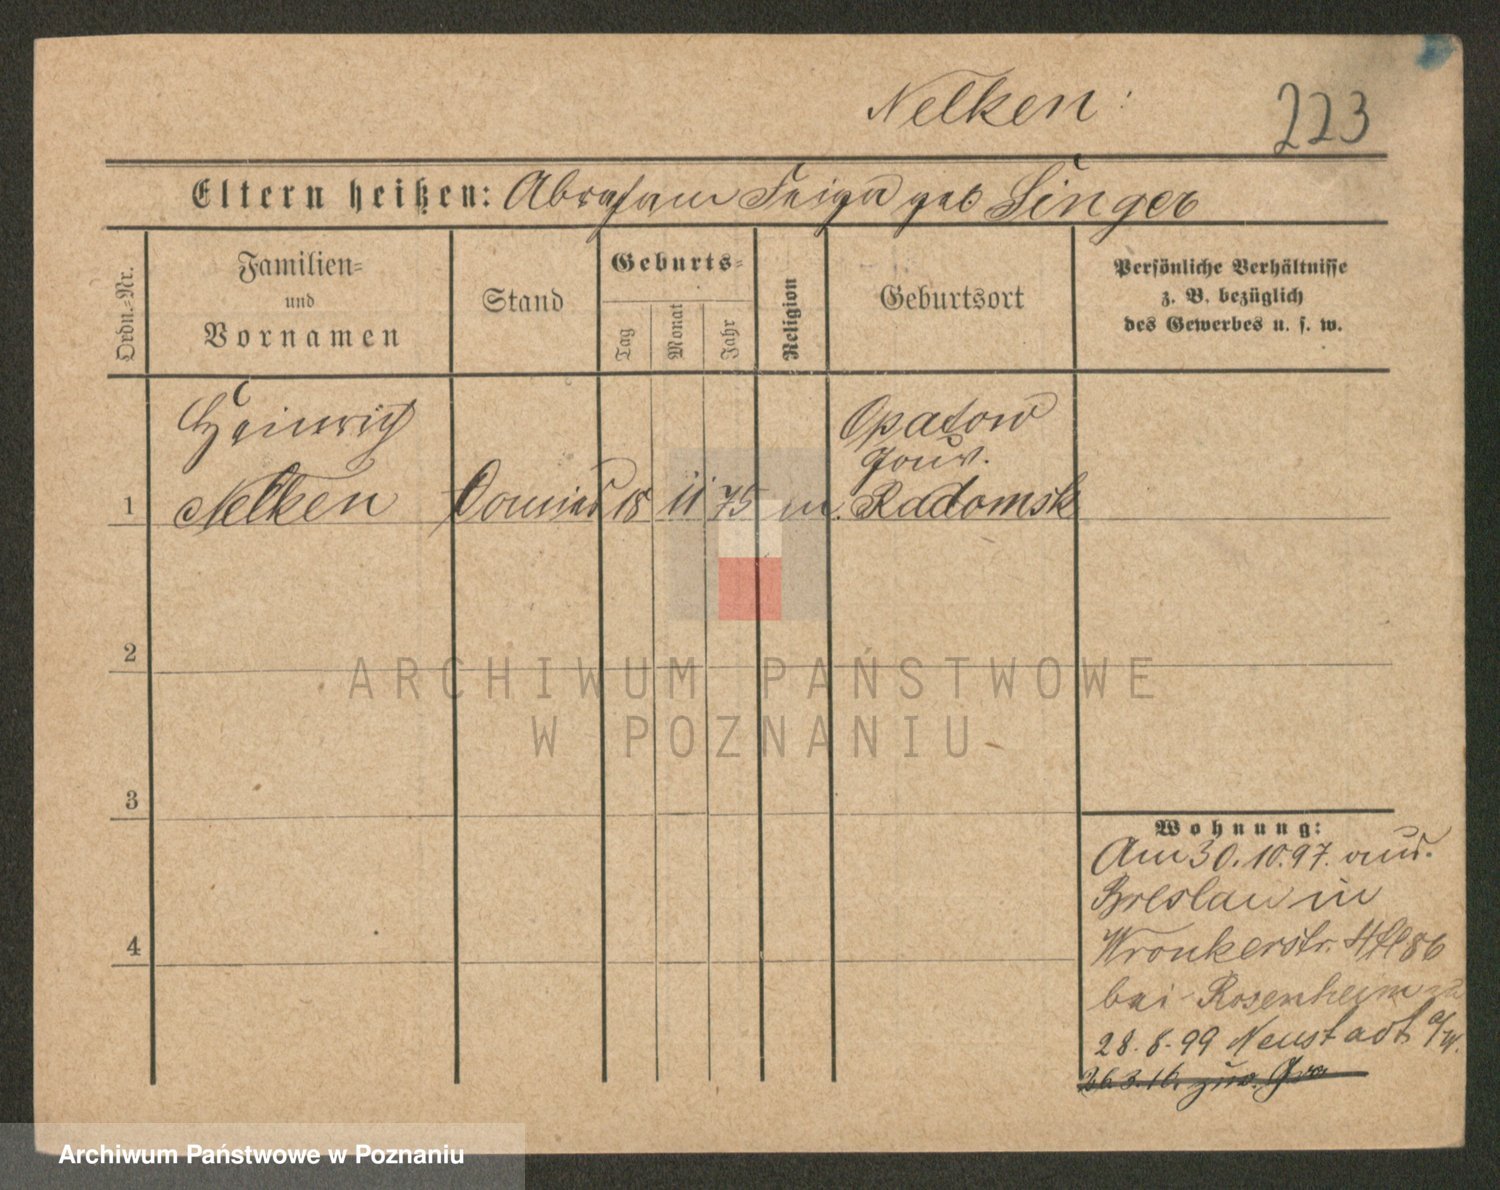 Nelken:
223
Eltern heißen: Abraham Feiga geb Singer
Ordn.=Nr.
Familien=
und
Vornamen
Stand
Geburts=
Tag
Monat
Jahr
Religion
Geburtsort
Persönliche Verhältnisse
z. B. bezüglich
des Gewerbes u. s. w.
Heinrich
Nelken
Opatow
Gouv.
Radomsk
1
Commis 18 11 75 m.
2
ARCHIWUM PAŃSTWOWE
W POZNANIU
3
Wohnung:
Am 30.10.97. aus.
Breslau in
Wronkerstr. 86
bei Rosenheim
4
28.8.99 Neustadt a/W.
26.3.16. zur.
Archiwum Państwowe w Poznaniu